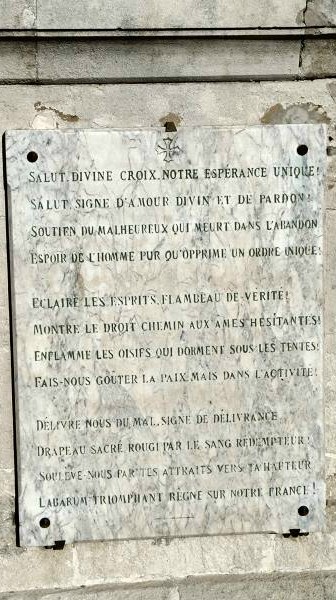 SALUT, DIVINE CROIX, NOTRE ESPÉRANCE UNIQUE!
SALUT, SIGNE D'AMOUR DIVIN ET DE PARDON!
SOUTIEN DU MALHEUREUX QUI MEURT DANS L'ABANDON
ESPOIR DE L'HOMME PUR QU'OPPRIME UN ORDRE INIQUE!
ECLAIRE LES ESPRITS, FLAMBEAU DE VÉRITÉ!
MONTRE LE DROIT CHEMIN AUX AMES HÉSITANTES!
ENFLAMME LES OISIFS QUI DORMENT SOUS LES TENTES!
FAIS-NOUS GOÛTER LA PAIX, MAIS DANS L'ACTIVITÉ!
DÉLIVRE NOUS DU MAL, SIGNE DE DÉLIVRANCE
DRAPEAU SACRÉ, ROUGI PAR LE SANG RÉDEMPTEUR!
SOULÈVE-NOUS PAR TES ATTRAITS VERS TA HAUTEUR
LABARUM TRIOMPHANT RÈGNE SUR NOTRE FRANCE!